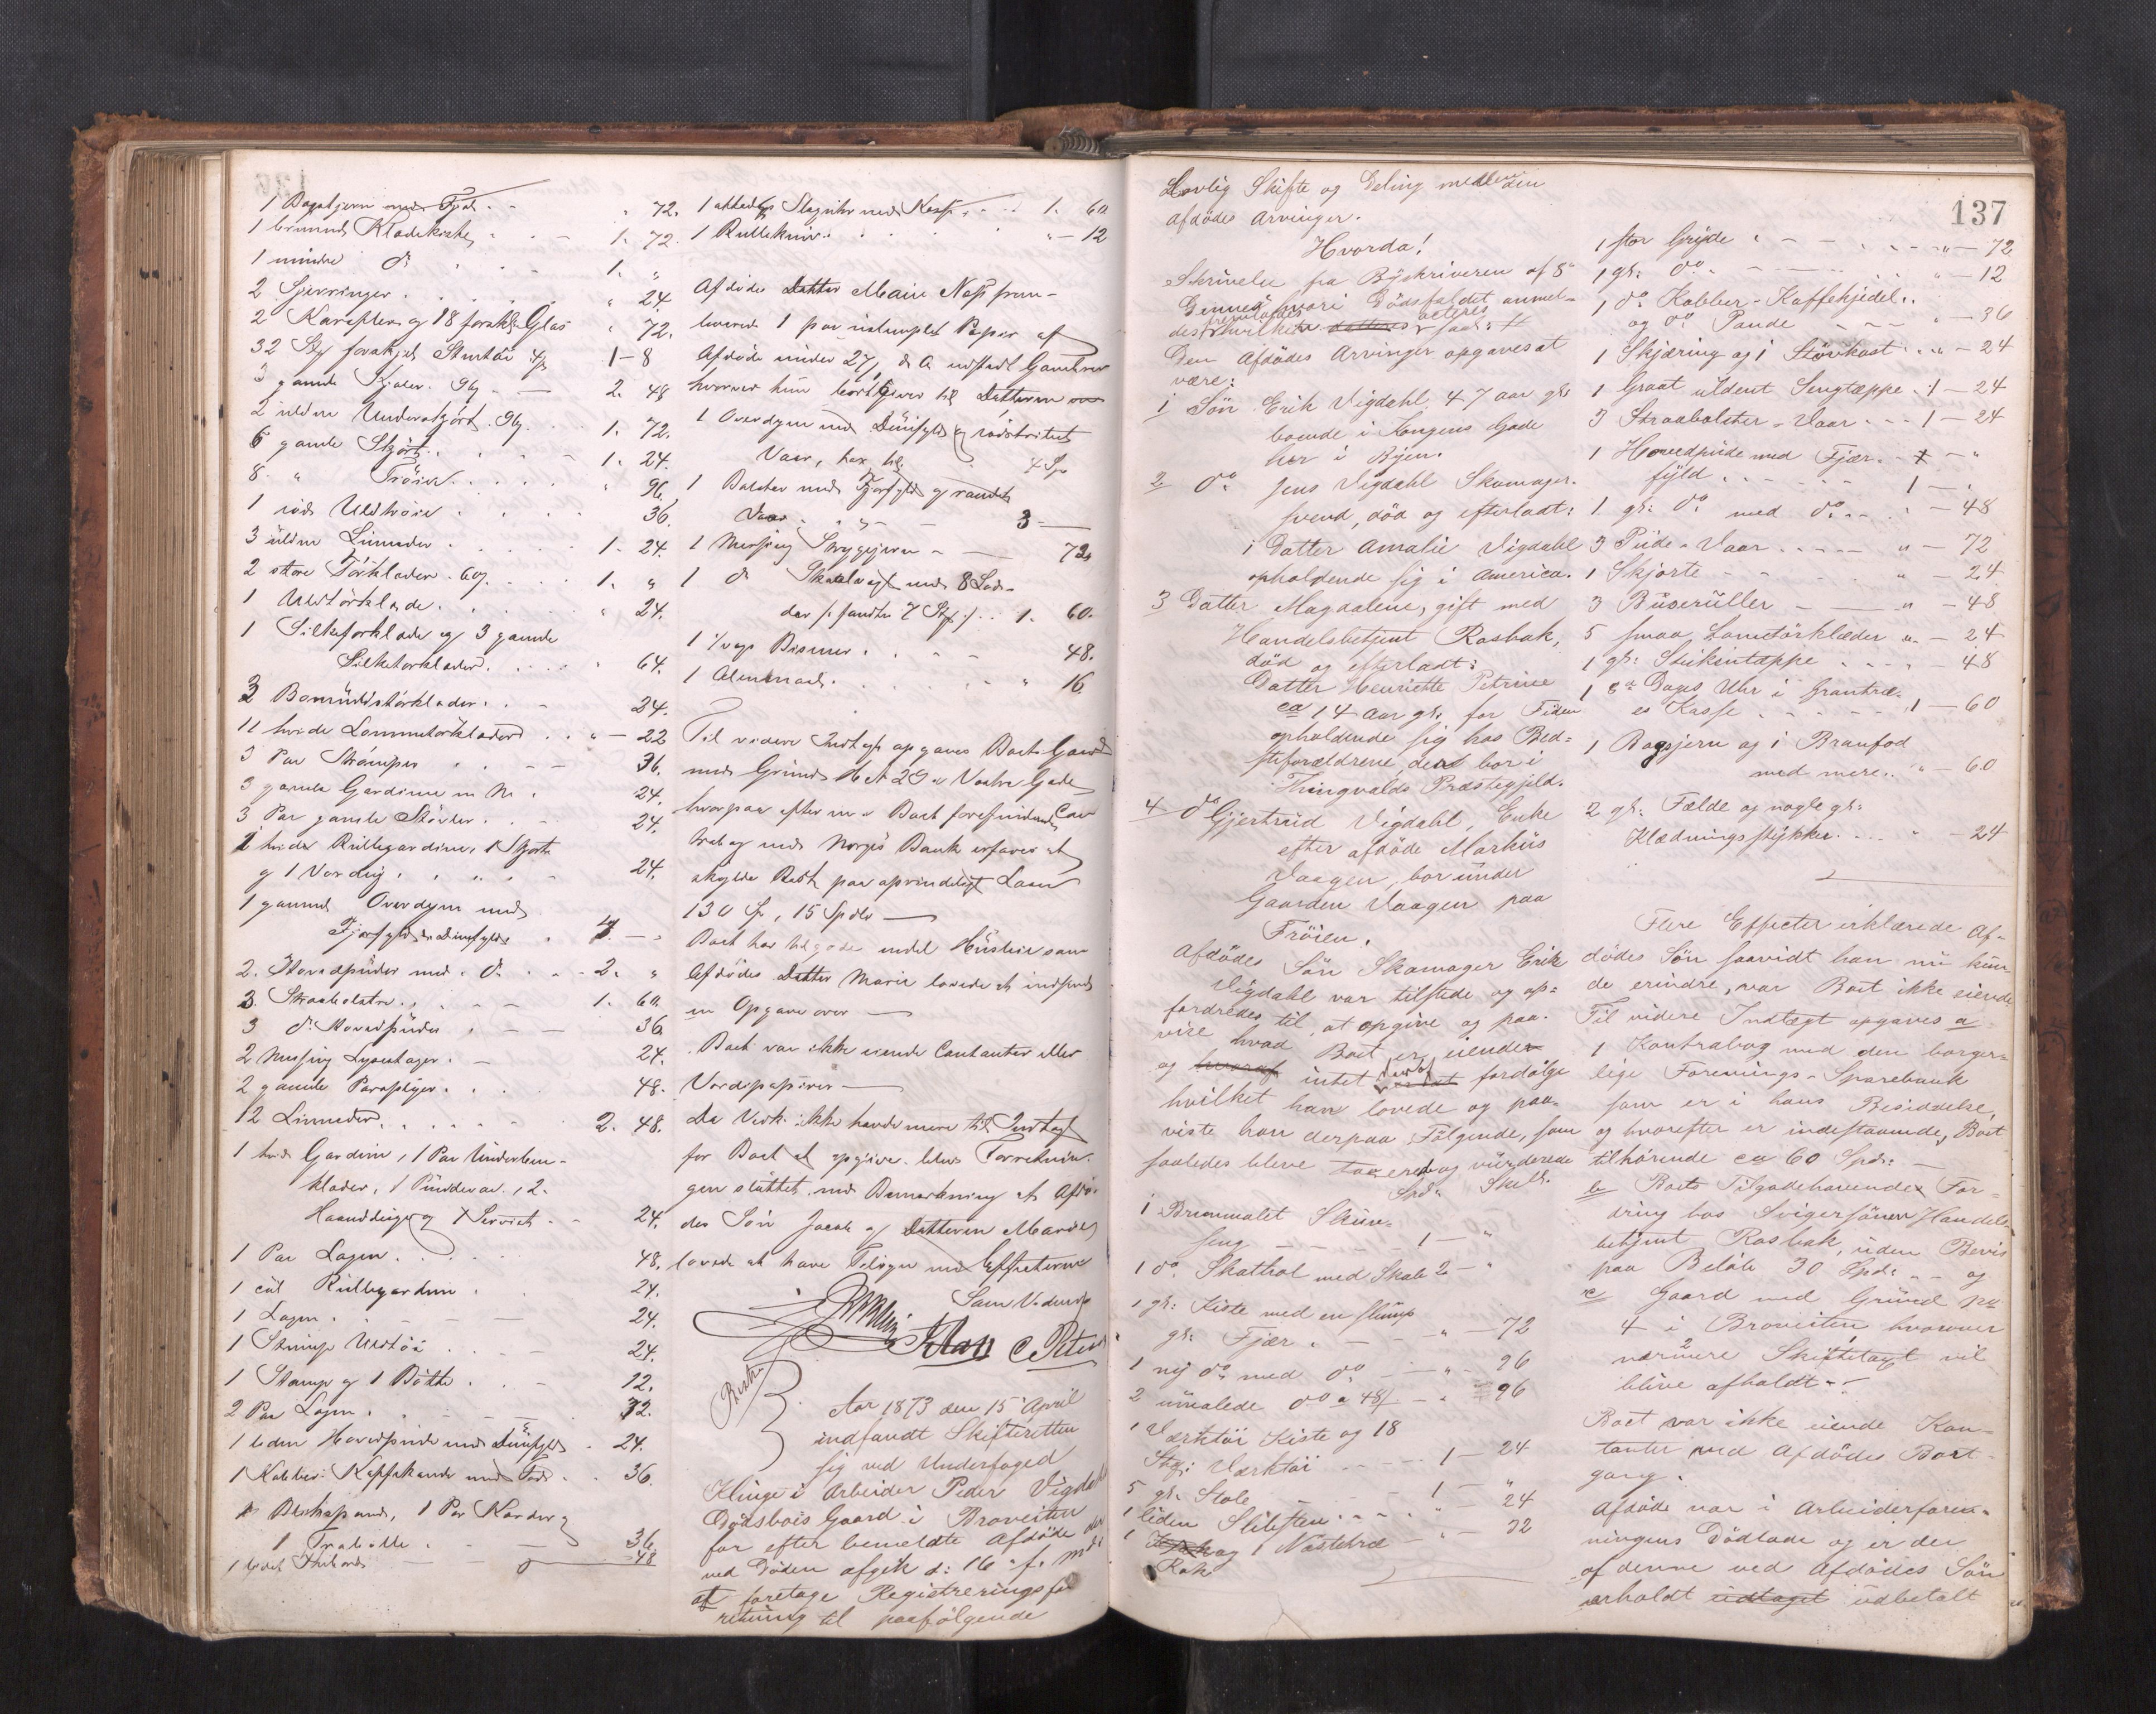 1 Bagstjern med Fjæl - - " 72.
1 brunmalt Klædekiste - - 1. 72.
1 mindre do - - 1. "
2 Sperringer . . . " 24.
2 Karafler og 18 forskjl Glas " 72.
32 Stk forskjl Stentøi 1-8
3 gamle Kjoler - 2. 48
2 uldne Underskjørt 1. 72.
6 gamle Skjørt . . 1. 24.
8 " Trøier . . . " 96.
1 rød Uldtrøie . . . 36.
3 uldne Linneder . . 1. 24.
2 store Tørklæder . . 1. "
1 Uldtørklæde . . " 24.
1 Silkeforklæde og 3 gamle
Silketørklæder . . . " 64.
3 Bomuldstørklæder . . 24.
11 hvide Lommetørklæder . . " - 22
3 Par Strømper . . - - 36.
3 gamle Gardiner m M. 24.
3 Par gamle Støvler . . 24.
2 hvide Rullegardiner, 1 Skjorte
og 1 . . . 24.
1 gammel Overdyne med
Fjærfyld . 4. - "
2. Hovedpuder med do . . - 2. "
3. Straabolstre . . 1. 60.
3 do Hovedpuder . - - 36.
2 Messing Lysestager . - 24.
2 gamle Paraplyer . . . 48.
12 Linneder . . . . 2. 48.
1 hvid Gardin, 1 Par Underben-
klæder, 1 Pudevar, 2
Haanddüge og 1 Serviet . . 24.
1 Par Lagen . . . 48.
1 Rullegardin . . 24.
1 Lagen . . - - 24.
1 Stump Uldtøi . . . 24.
1 Stamp og 1 Bøtte . . - 12.
2 Par Lagen . . . 72.
1 liden Hovedpude med Düunfyld . 24.
1 Kobber Kaffekande med Fad . . 36.
1 Blikspand, 1 Par Karder og
1 Træbøtte . . - - 36.
1 - - - 48
1 Slaguhr med Kasse . - . . 1. 60
1 Rullekniv . . . . " - 12
Afdødes Datter Marie frem-
leverede 1 paa ustemplet Papir af
Afdøde under 27/ udstedt Gavebrev
hvorved hun bortgiver til Datteren
1 Overdyne med Dünfyld og rødstribet
Vaar, 4 Sp
1 Bolster med Fjærfyld og randet
Vaar . . " - - 3 -
1 Messing Strygejern - - 72.
1 do Skaalvægt med 8 Lod-
der /: fandtes 7 Stk :/ . . 1. 60.
1 Bismer . . - - 48.
1 Alenmaal . . . - " 16
Til videre Indtægt opgaves Boets Gaard
med Grund No 29 Vestre Gade
hvorpaa efter en i Boet forefindende Con
trabog med Norges Bank erfares at
skyldes Rest paa oprindeligt Laan
130 Sp, 15 Spdlr -
Boet har tilgode endel Husleie som
Afdødes Datter Marie lovede at indsende
en Opgave over -
Boet var ikke eiende Contanter eller
Værdipapirer -
Da Vedk: ikke havde mere til Indtægt
for Boet at opgive, blev Forretnin-
gen sluttet med Bemærkning at Afdø-
des Søn Jacob og Datteren Marie
lovede at have Tilsyn med Effecterne
Aar 1873 den 15 April
indfandt Skifteretten
sig ved Underfoged
Klinge i Arbeider Peder Vigdahls
Dødsbois Gaard i Braveiten
for efter bemeldte Afdøde der
ved Døden afgik d: 16 f. Md
at foretage Registreringsfor
retning til paafølgende
137
Lovlig Skifte og Deling mellem den
afdødes Arvinger.
Hvorda!
Skrivelse fra Byskriveren af 8de
hvori Dødsfaldet anmel-
des fremlagdes hvilken datteres acteres saal: #
Den Afdødes Arvinger opgaves at
være:
1 Søn Erik Vigdahl 47 aar gl:
boende i Kongens Gade
her i Byen.
2 do Jens Vigdahl Skomager-
svend, død og efterladt:
1 Datter Amalie Vigdahl
opholdende sig i America.
3 Datter Magdalene, gift med
Handelsbetjent Rosbak,
død og efterladt:
Datter Henriette Petrine
ca 14 aar gl. for Tiden
opholdende sig hos Bed-
steforældrene, der bor i
Thingvolds Præstegjeld.
4 do Gjertrud Vigdahl, Enke
efter afdøde Markus
Vaagen, bor under
Gaarden Vaagen paa
Frøien.
Afdødes Søn Skomager Erik
Vigdahl var tilstede og op-
fordredes til, at opgive og paa-
vise hvad Boet er eiende
og hvoraf intet fordølge
hvilket han lovede og paa-
viste han derpaa Følgende, som
saaledes bleve taxered og vurderede
Spd: Skill:
1 Brunmalet Skuve-
seng - - - - - 1 - "
1 do Skathol med Skab 2 - "
1 gl: Kiste med en slump
gl: Fjær . - - - " - 72
1 ny do med do - - " - 96
2 umalede do a 48 - " - 96
1 Værktøi Kiste og 18
Stk: Værktøi - - - - 1 - 24
5 gl. Stole - - - 1 - "
1 liden Slibsten . . . . " - 24
1 og 1 - " - 32
Rok
1 stor Gryde . - - . . - - " - 72
1 gl: do . - - - - - " - 12
1 do Kobber-Kaffekjedel . .
og do Pande - - - " - 36
1 Skjæring og 1 Støvkost . . " - 24
1 Graat uldent Sengtæppe . 1 - 24
3 Straabolster-Vaar . - - 1 - 24
1 Hovedpude med Fjær-
fyld . . - - - - 1 - "
1 gl: do med do . - . " - 48
3 Pude-Vaar . . - - - " - 72
1 Skjorte - - - " - 24
3 Buseruller - - " - 48
5 smaa Lometørklæder " - 24
1 gl: Stikentæppe . . - - " - 48
1 8te Dages Uhr i Grantræ-
es Kasse - - - - 1 - 60
1 Bagsjern og 1 Brandfod
med mere . . " - 60
2 gl: Fælde og nogle gl:
Klædningsstykker . . . " - 24
Flere Effecter erklærede Af-
dødes Søn saavidt han nu kun
de erindre, var Boet ikke eiende
Til videre Indtægt opgaves a
1 Kontrabog med den borger-
lige Forenings-Sparebank
som er i hans Besiddelse,
og hvorefter er indestaaende, Boet
tilhørende ca 60 Spd: -
b Boets Tilgodehavende For-
dring hos Svigersønen Handels-
betjent Rosbak, uden Bevis
paa Beløb 30 Spd: - - og
c Gaard med Grund No
4 i Braveiten hvorover
nærmere Skiftetaxt vil
blive afholdt -
Boet var ikke eiende Kon-
tanter ved Afdødes Bort-
gang.
Afdøde var i Arbeiderforen-
ningens Dødlade og er der
af denne ved Afdødes Søn
erholdt udtaget udbetalt